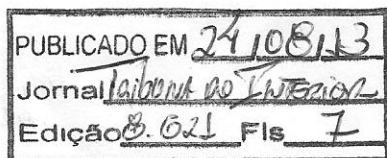 PUBLICADO EM 24/08/13
Jornal Tribuna do Interior
Edição 8.621 Fls 7